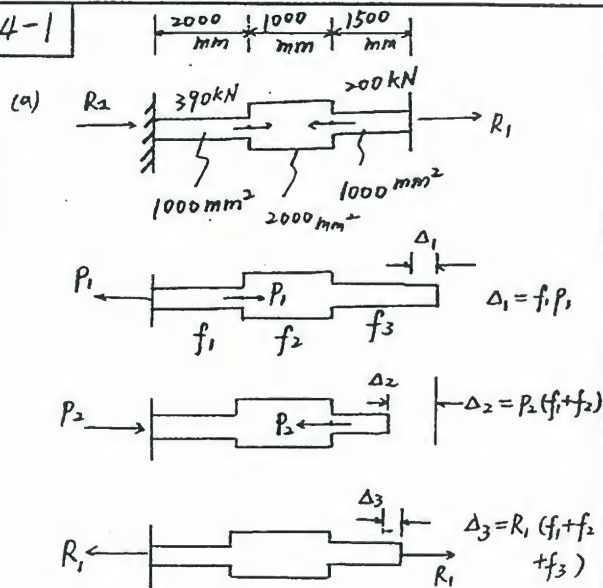 4-1
2000 mm
1000 mm
1500 mm
(a)
R2
390kN
200kN
R1
1000mm²
2000mm²
1000mm²
P1
P1
f1
f2
f3
Δ1
Δ1=f1P1
P2
P2
Δ2
Δ2=P2(f1+f2)
R1
Δ3
R1
Δ3=R1(f1+f2
+f3)